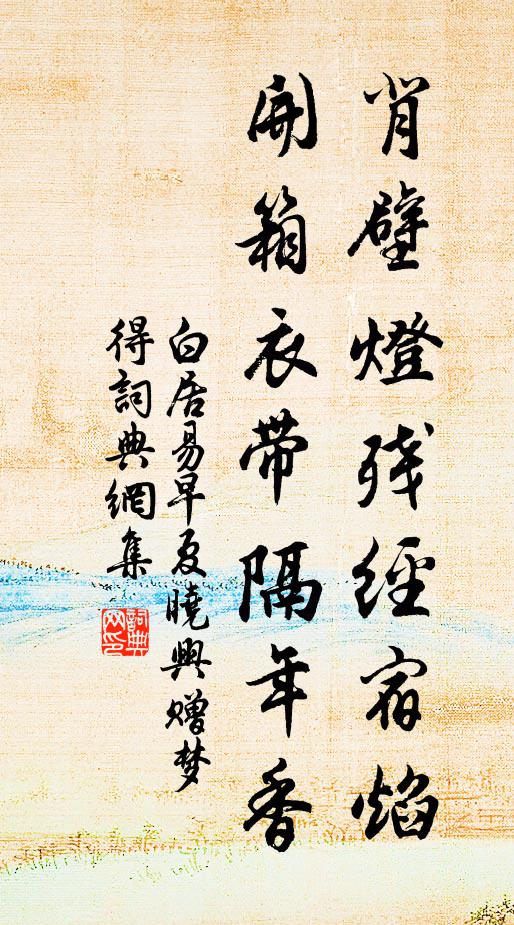 背壁燈残經宿焰
開箱衣帶隔年香
白居易早夏曉興赠梦
得詞典網集
詞典网印